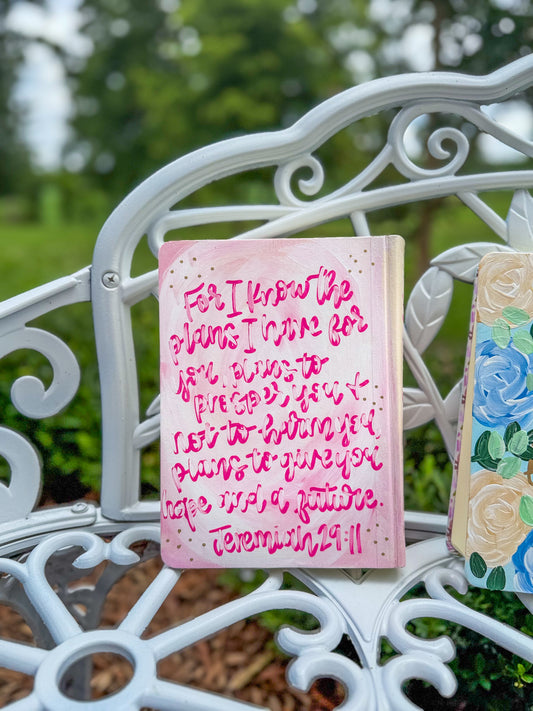 For I know the
plans I have for
you, plans to
prosper you &
not to harm you
plans to give you
hope and a future.
Jeremiah 29:11